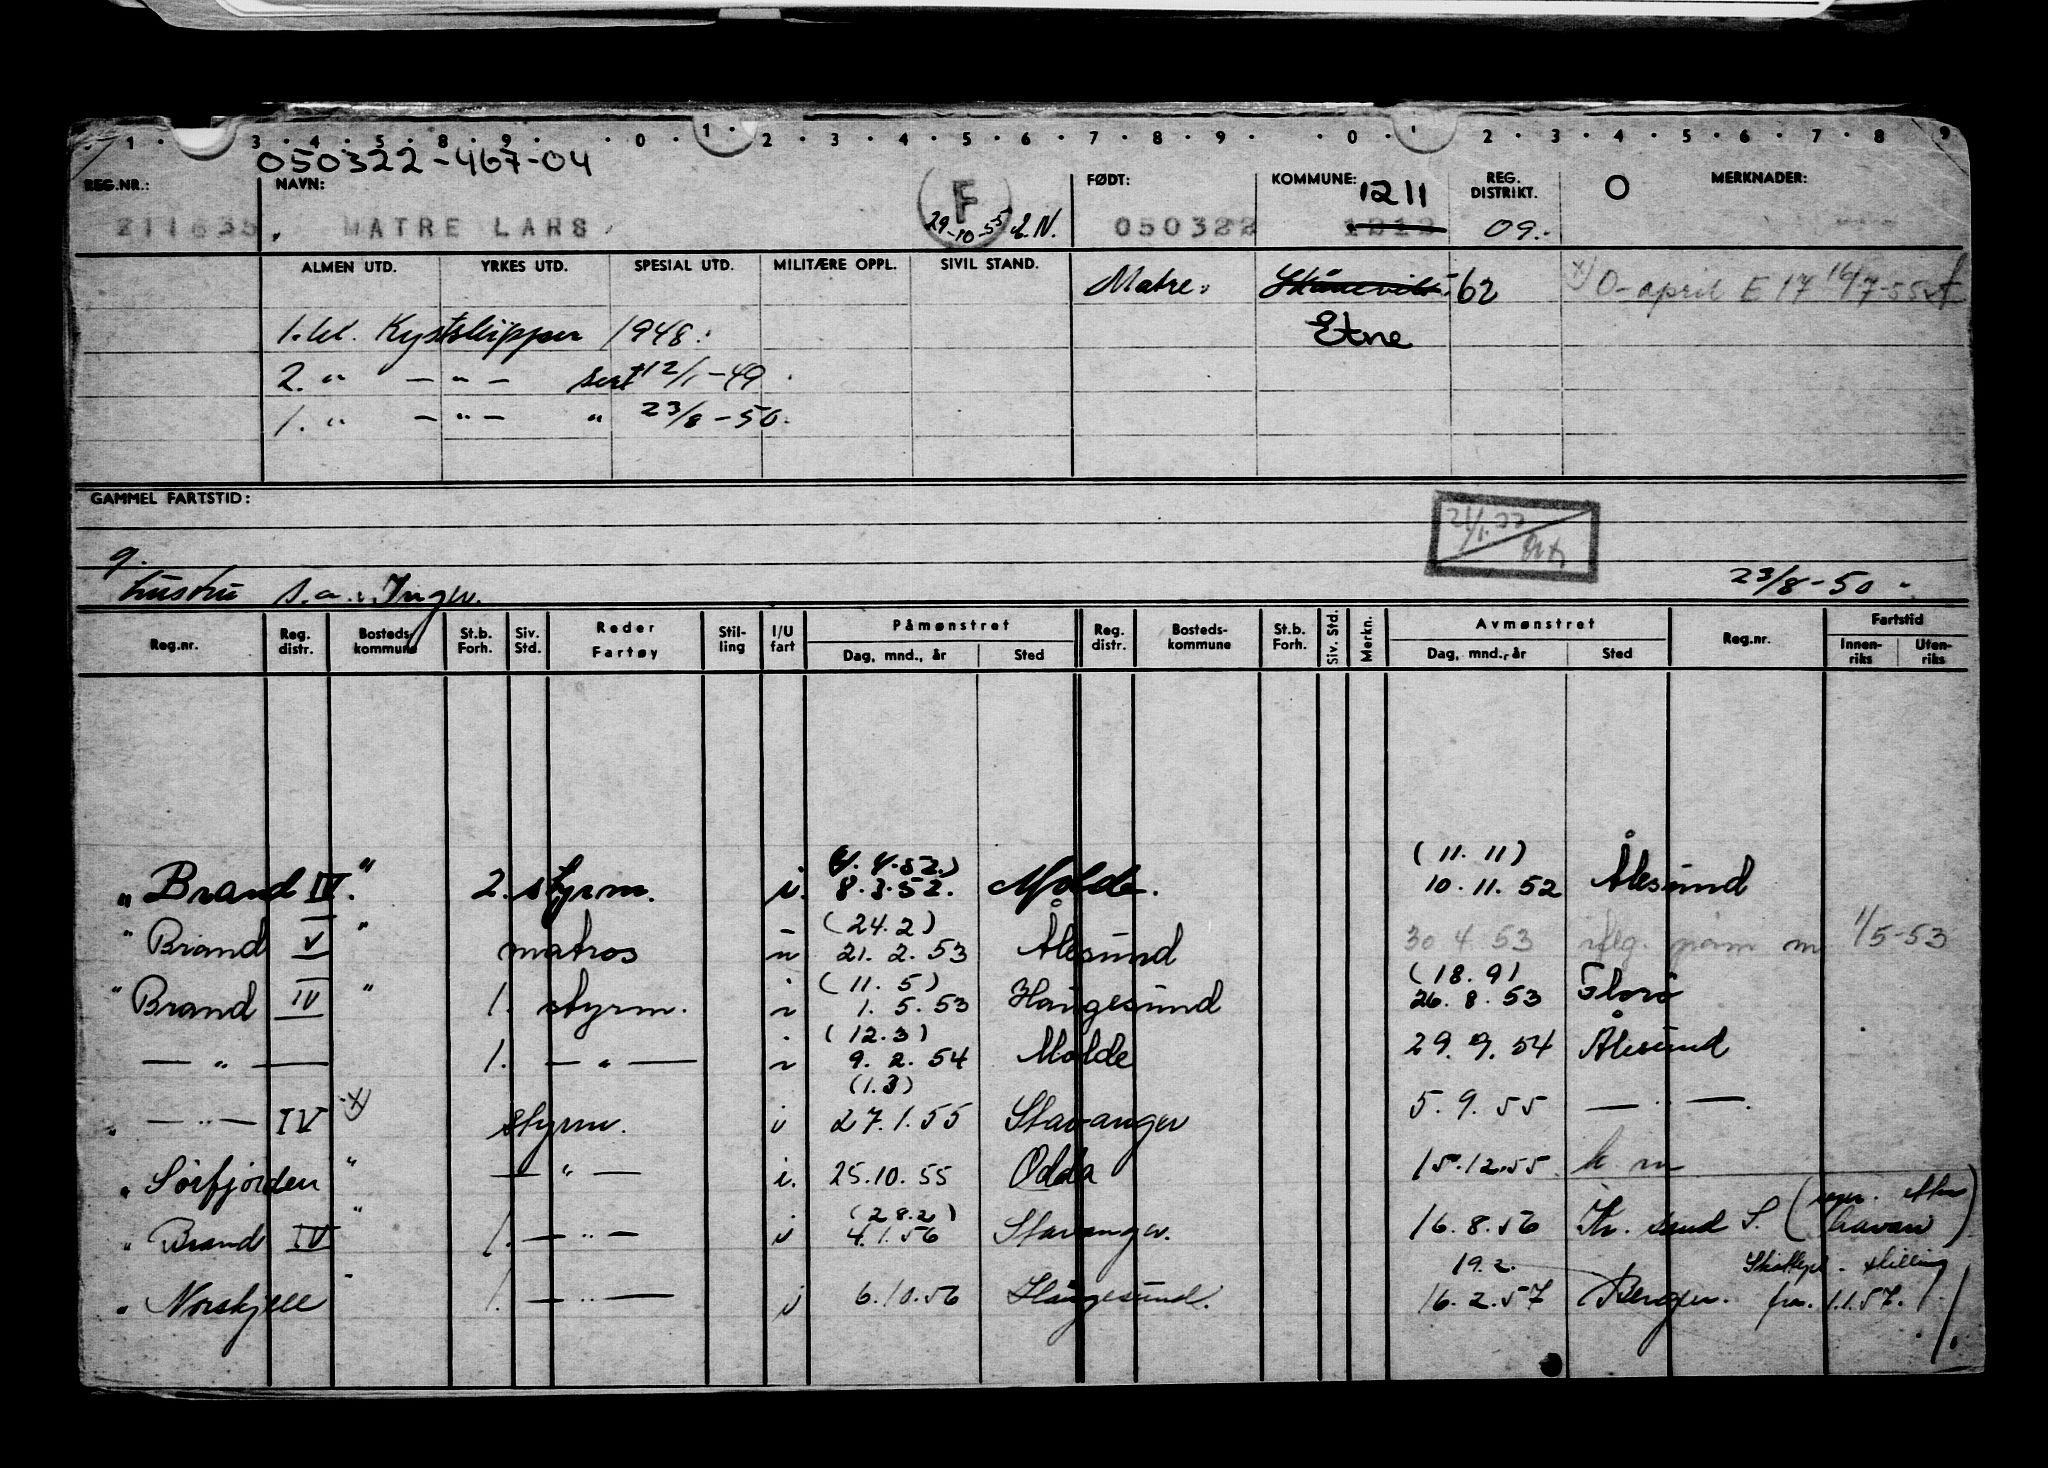 1 · 3 · 4 · 5 · 8 · 9 · · 0 · 1 · 2 · 3 · 4 · 5 · 6 · 7 · 8 · 9 · · 0 · 1 · 2 · 3 · 4 · 5 · 6 · 7 · 8 · 9
050322-467-04
REG.NR.: NAVN: FØDT: KOMMUNE: 1211 REG. DISTRIKT. O MERKNADER:
211635 MATRE LARS F 29-10-55 050322 1212 09.
ALMEN UTD. YRKES UTD. SPESIAL UTD. MILITÆRE OPPL. SIVIL STAND. Matre. Skånevik 62 x) O-april E 17 16/7-55
1. kl. Kystskipper 1948. Etne
2. " — " — sert 12/1-49
1. " — " — " 23/8-50.
GAMMEL FARTSTID:
9.
hustru s.a. Inger. 23/8-50
Reg.nr. Reg. distr. Bosteds-kommune St.b. Forh. Siv. Std. Reder Fartøy Stil-ling I/U fart Påmønstret Dag, mnd., år Sted Reg. distr. Bosteds-kommune St.b. Forh. Siv. Std. Merkn. Avmønstret Dag, mnd., år Sted Reg.nr. Fartstid Innen-riks Uten-riks
(4.4.52.) (11.11)
" Brand IV " 2. styrm. i. 8.3.52. Molde. 10.11.52 Ålesund
(24.2)
" Brand V " matros 21.2.53 Ålesund 30 4.53 m 1/5-53
(11.5) (18.9)
" Brand IV " 1. styrm. i 1.5.53 Haugesund 26.8.53 Florø
(12.3)
— " — 1. — " — i 9.2.54 Molde 29.9.54 Ålesund
(1.3)
" — " — IV x) styrm. i 27.1.55 Stavanger 5.9.55 — " —
" Sørfjorden " — " — i. 25.10.55 Odda 15.12.55 k. m
(28.2)
" Brand IV " 1. — " — i 4.1.56 Stavanger. 16.8.56 Kr. sund S. (repr. etter havari)
19.2. Skattepl. stilling
" Norskjell " 1. — " — i 6.10.56 Haugesund. 16.2.57 Bergen. fra. 1.1.57.